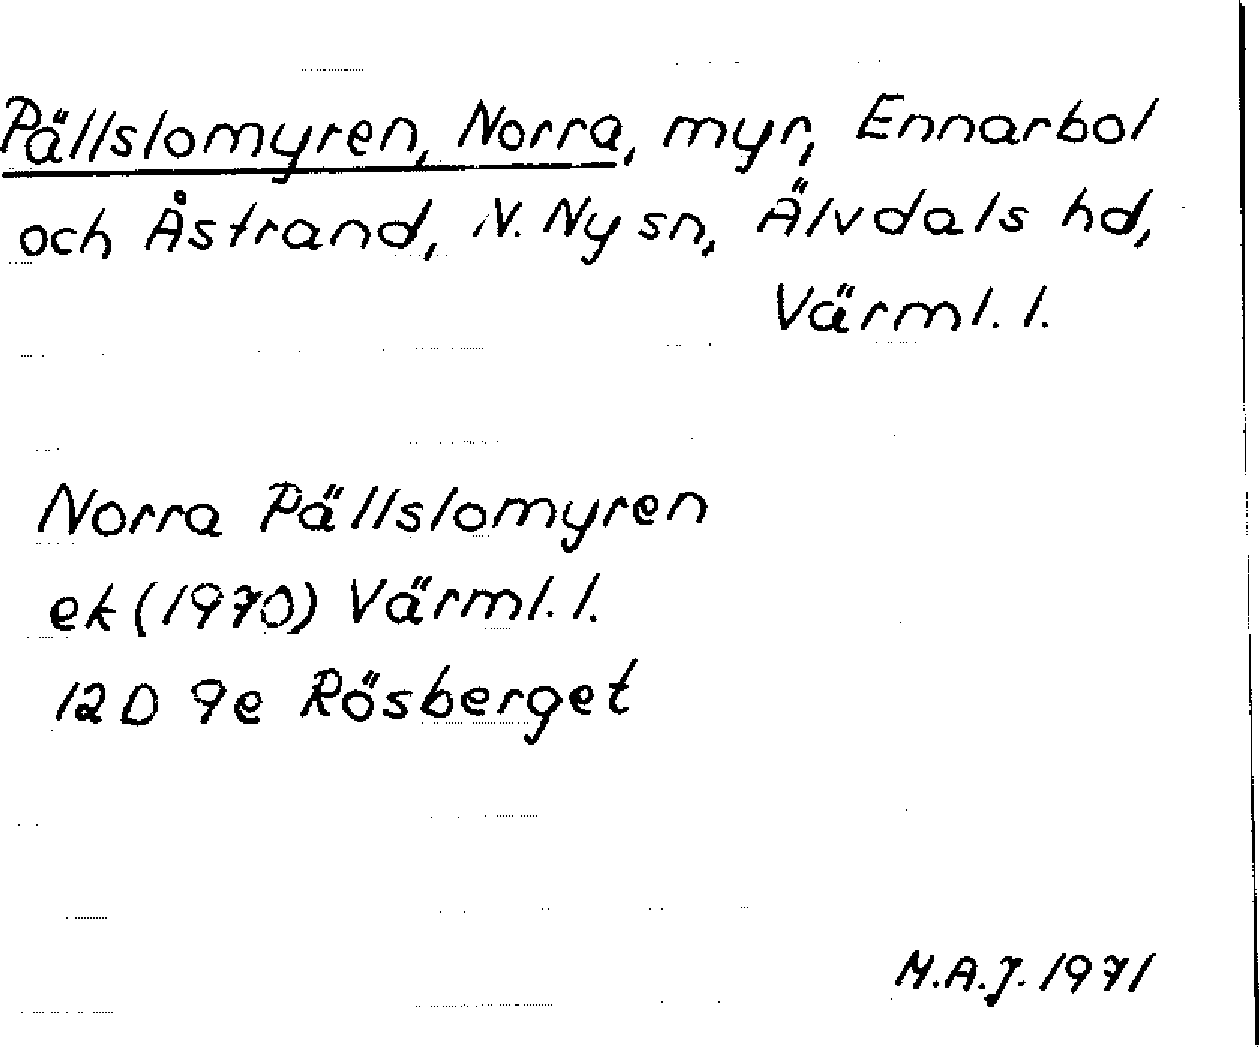 Pällslomyren, Norra, myr, Ennarbol
och Åstrand, N. Ny sn, Älvdals hd,
Värml. l.
Norra Pällslomyren
ek (1970) Värml. l.
12 D 9e Rösberget
M.A.J. 1971